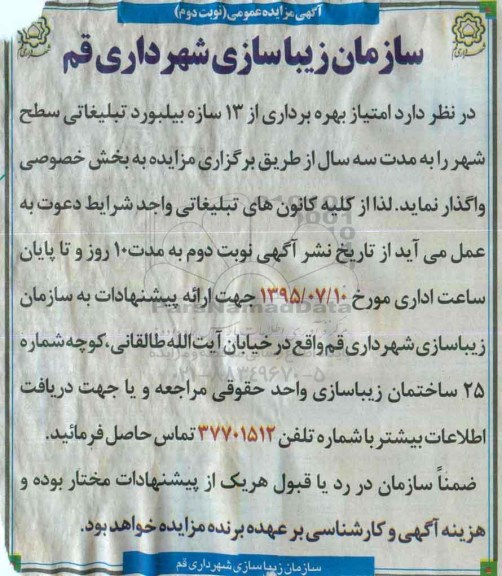 آگهی مزایده عمومی (نوبت دوم)
سازمان زیباسازی شهرداری قم
در نظر دارد امتیاز بهره برداری از ۱۳ سازه بیلبورد تبلیغاتی سطح
شهر را به مدت سه سال از طریق برگزاری مزایده به بخش خصوصی
واگذار نماید. لذا از کلیه کانون های تبلیغاتی واجد شرایط دعوت به
عمل می آید از تاریخ نشر آگهی نوبت دوم به مدت۱۰ روز و تا پایان
ساعت اداری مورخ ۱۳۹۵/۰۷/۱۰ جهت ارائه پیشنهادات به سازمان
ParsNamadData
زیباسازی شهرداری قم واقع در خیابان آیت الله طالقانی، کوچه شماره
۰۲۱-۸۸۳۴۹۶۷۰-۵
۲۵ ساختمان زیباسازی واحد حقوقی مراجعه و یا جهت دریافت
اطلاعات بیشتر با شماره تلفن ۳۷۷۰۱۵۱۲ تماس حاصل فرمائید.
ضمناً سازمان در رد یا قبول هریک از پیشنهادات مختار بوده و
هزینه آگهی و کارشناسی بر عهده برنده مزایده خواهد بود.
سازمان زیبا سازی شهرداری قم